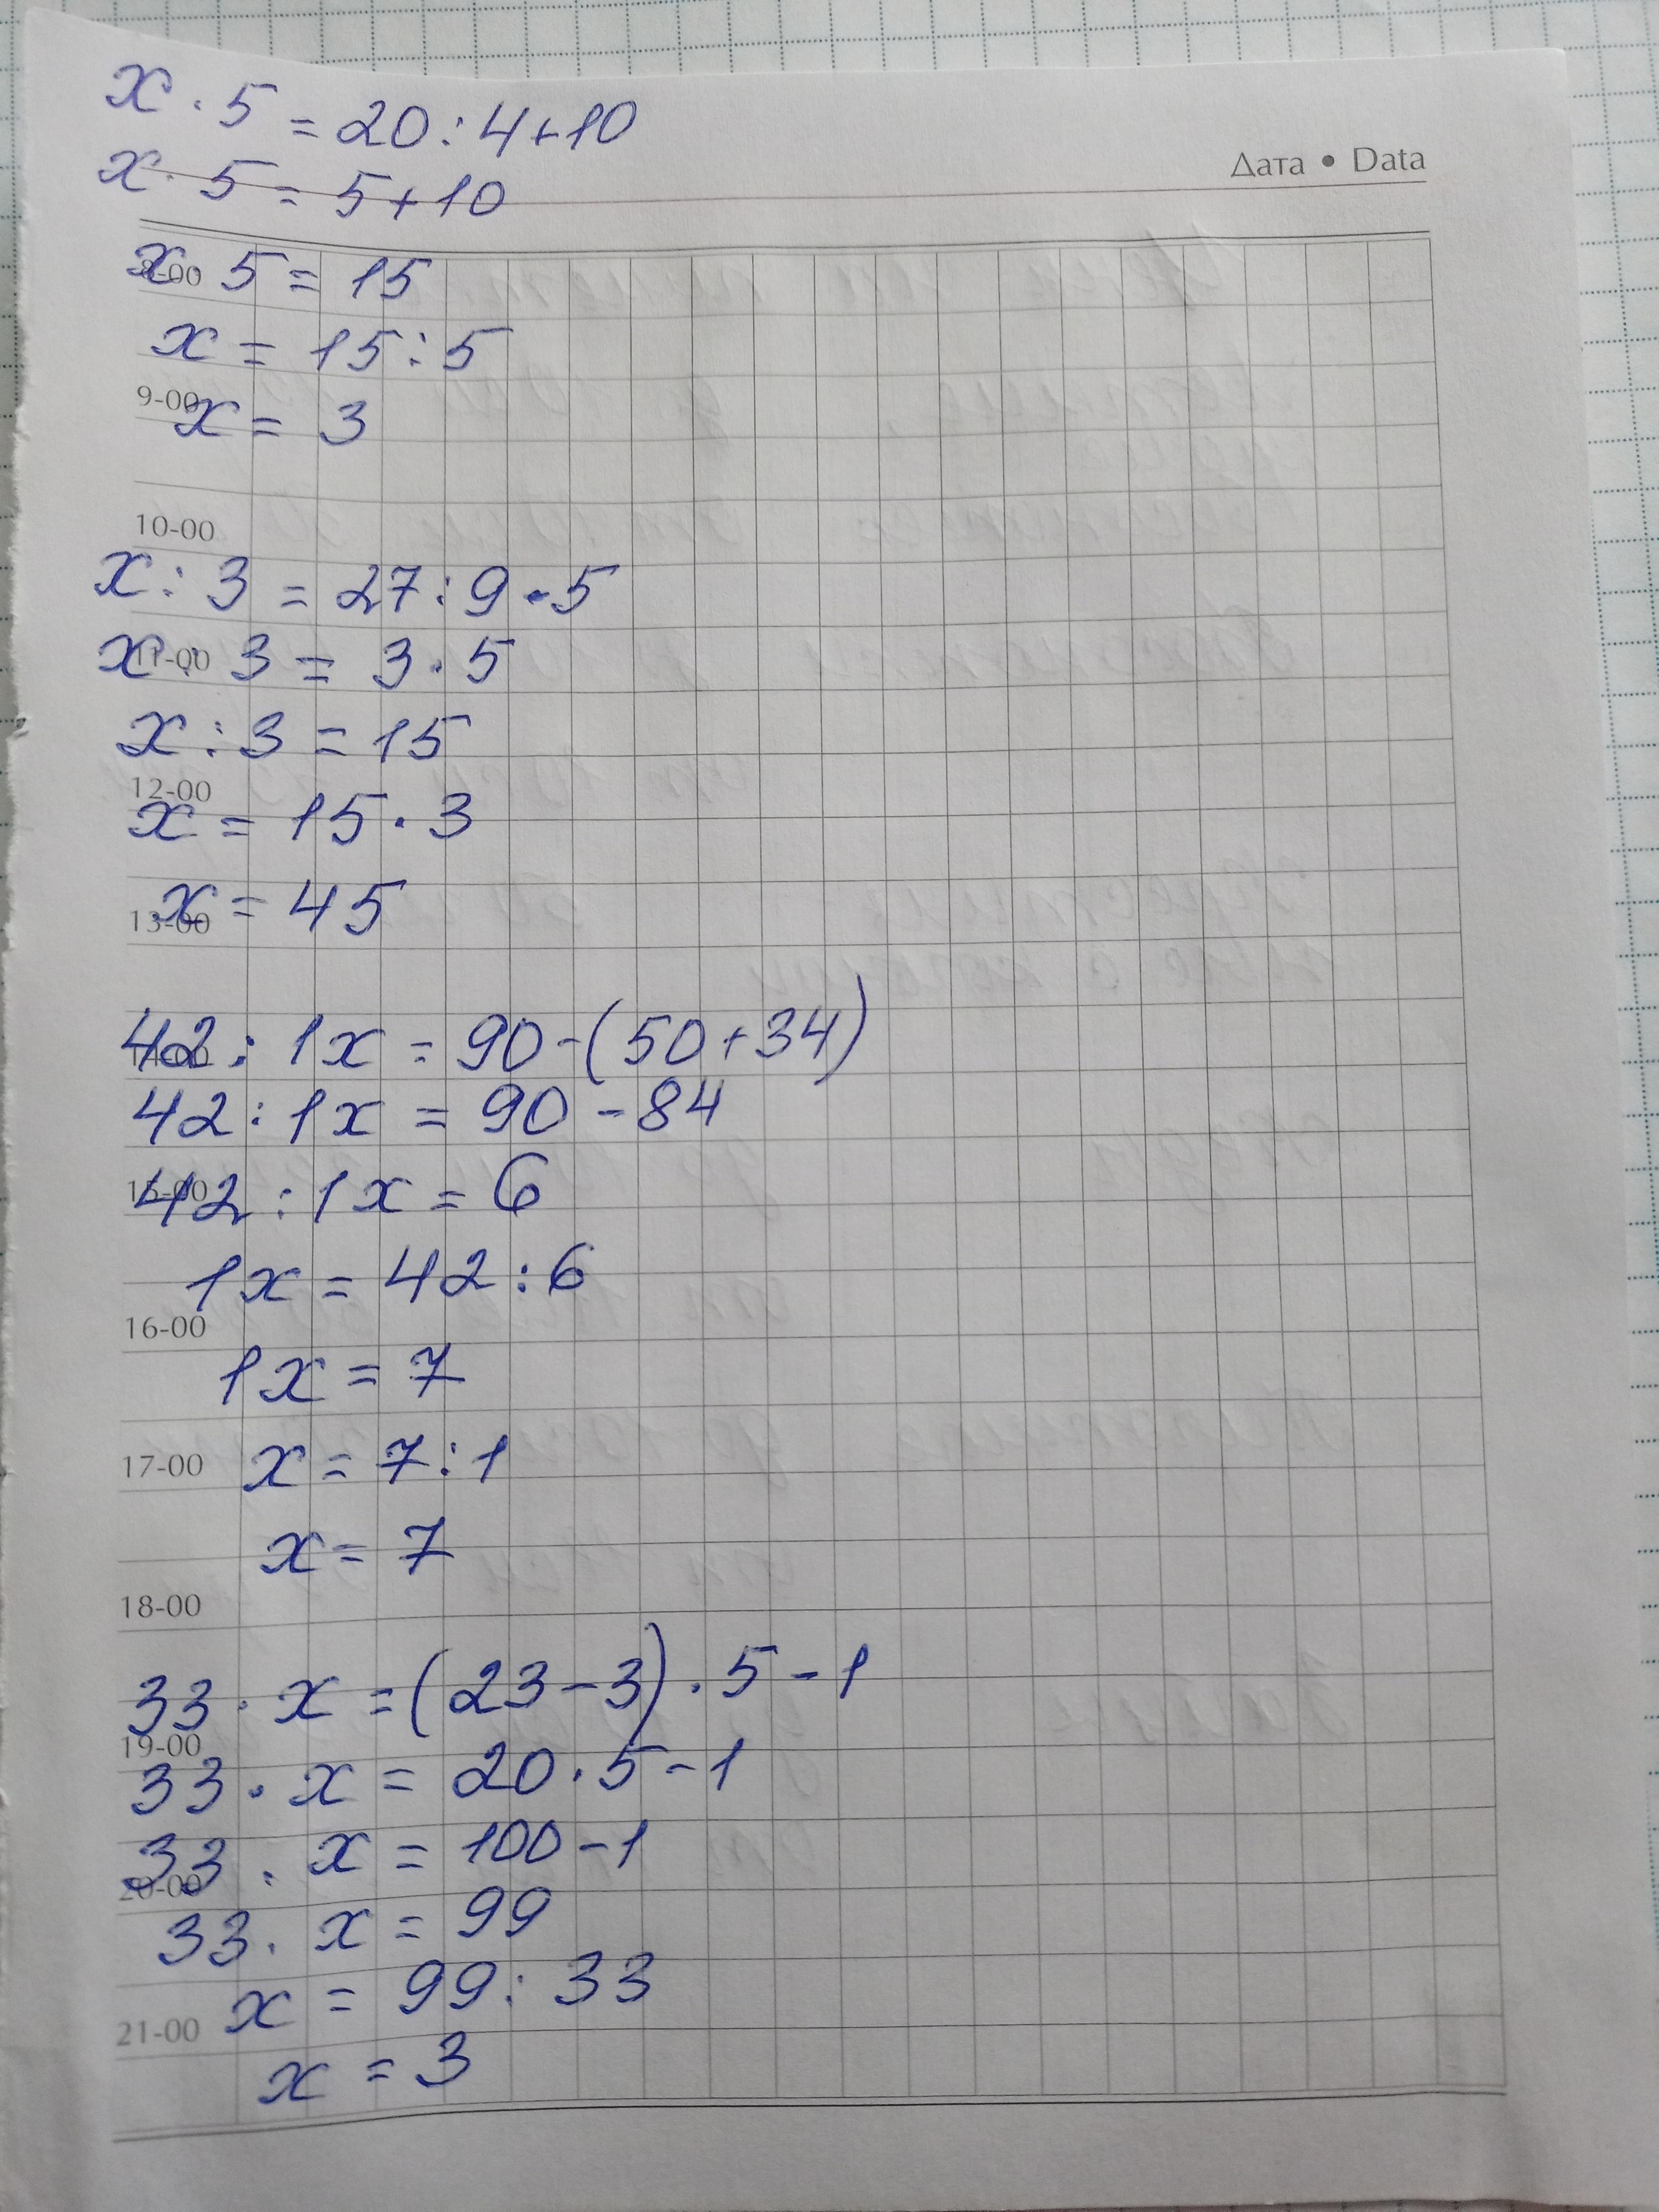 x · 5 = 20 : 4 + 10
Дата • Data
x · 5 = 5 + 10
8-00
x · 5 = 15
x = 15 : 5
9-00
x = 3
10-00
x : 3 = 27 : 9 · 5
11-00
x : 3 = 3 · 5
x : 3 = 15
12-00
x = 15 · 3
13-00
x = 45
42 : 1x = 90 - (50 + 34)
14-00
42 : 1x = 90 - 84
15-00
42 : 1x = 6
1x = 42 : 6
16-00
1x = 7
17-00
x = 7 : 1
x = 7
18-00
33 · x = (23 - 3) · 5 - 1
19-00
33 · x = 20 · 5 - 1
33 · x = 100 - 1
20-00
33 · x = 99
x = 99 : 33
21-00
x = 3